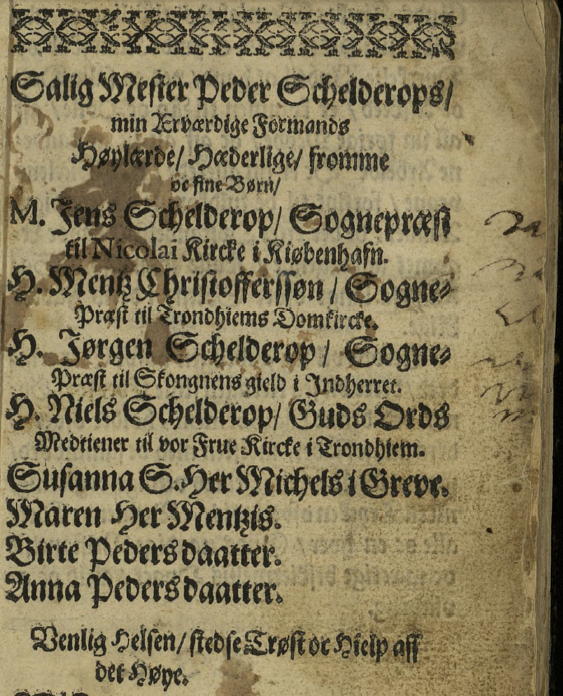 Salig Mester Peder Schelderops/
min Ærværdige Formands
Høylærde/ Hæderlige/ fromme
oc fine Børn/
M. Jens Schelderop/ Sognepræst
til Nicolai Kircke i Kiøbenhafn.
H. Mentz Christoffersøn / Sogne-
Præst til Trondhiems Domkircke.
H. Jørgen Schelderop / Sogne-
Præst til Skongnens gield i Indherret.
H. Niels Schelderop/ Guds Ords
Medtiener til vor Frue Kircke i Trondhiem.
Susanna S. Her Michels i Greve.
Maren Her Mentzis.
Birte Peders daatter.
Anna Peders daatter.
Venlig Helsen/ stedse Trøst oc Hielp aff
det Høye.